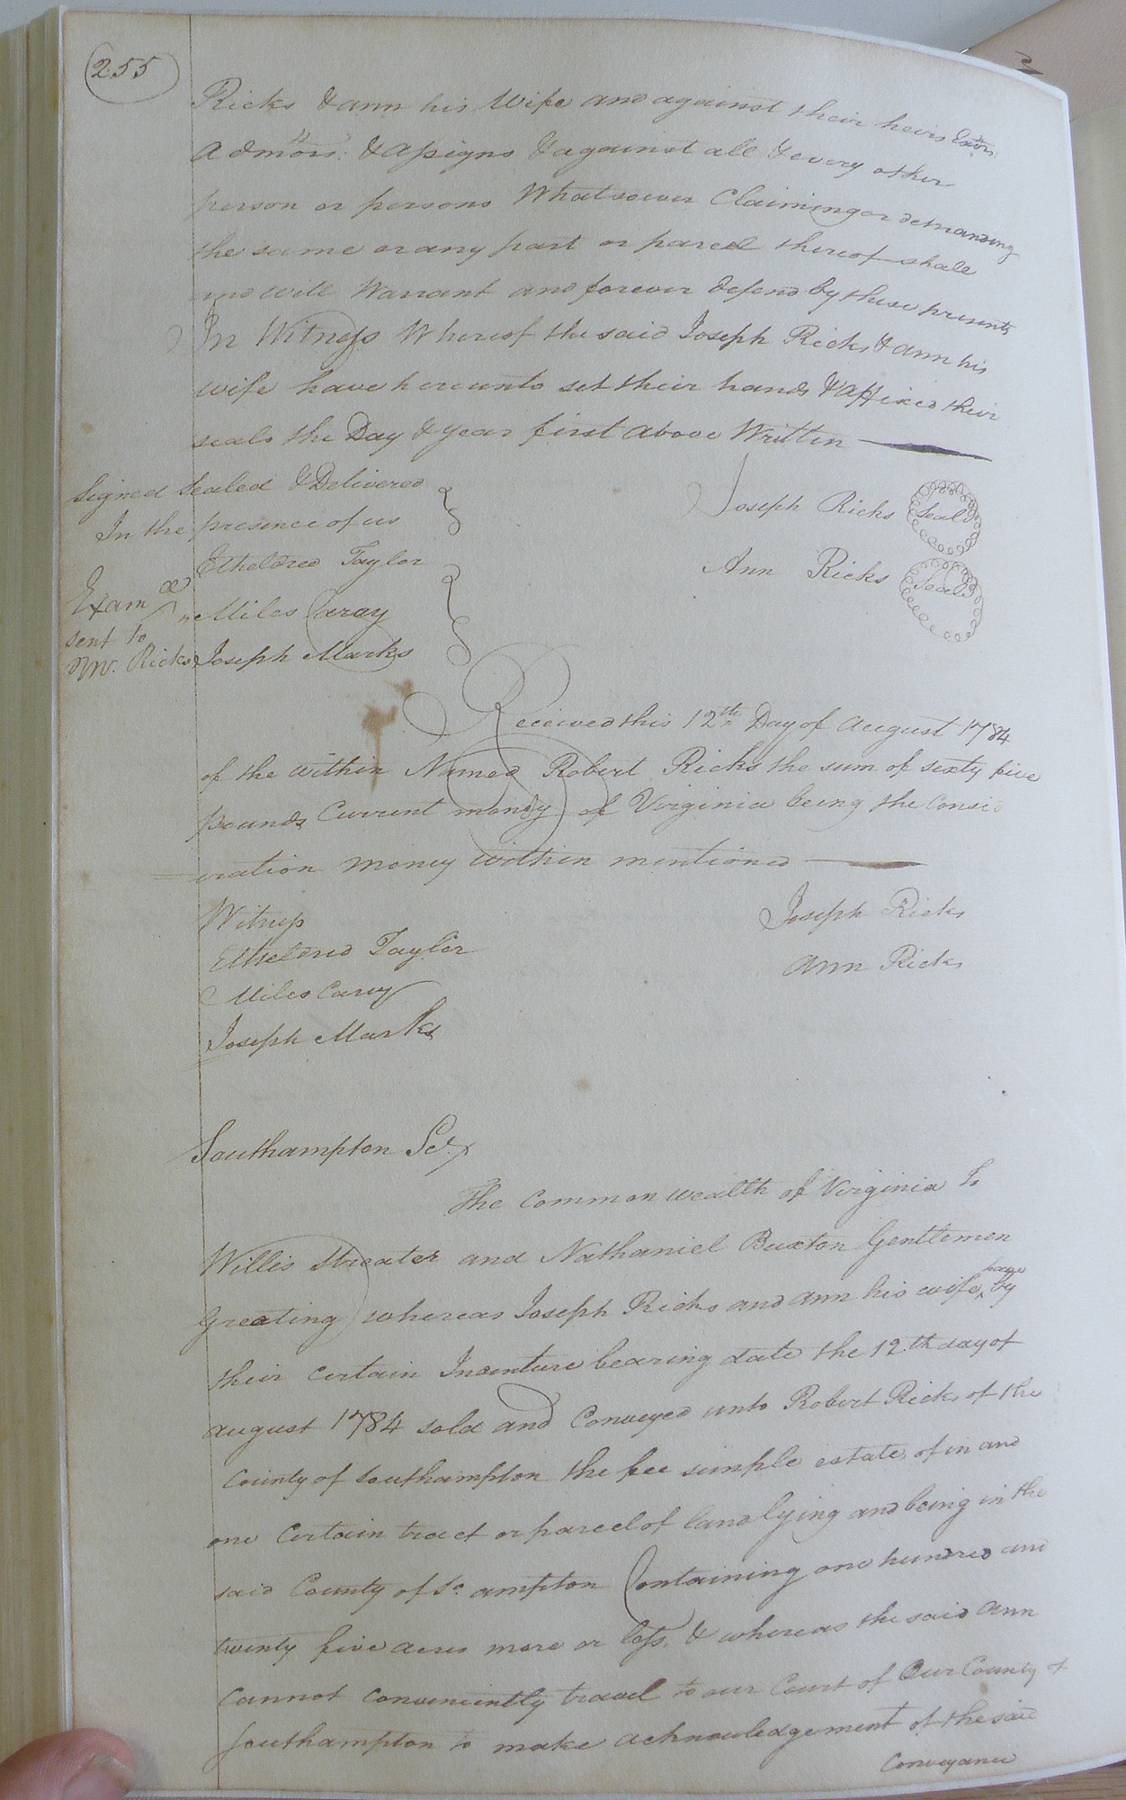 255
Ricks & ann his Wife and against their heirs Exors.
Admors. & assigns & against all & every other
person or persons Whatsoever Claiming or demanding
the same or any part or parcel thereof shall
and will Warrant and forever defend by these presents
In Witness Whereof the said Joseph Ricks & ann his
wife have hereunto set their hands & affixed their
seals the Day & year first above Written
Signed Sealed & Delivered
In the presence of us
Joseph Ricks Seal
Etheldred Taylor
Ann Ricks Seal
Exam
Miles Caray
sent to
Mr. Ricks
Joseph Marks
Received this 12th Day of August 1784
of the within Named Robert Ricks the sum of sixty five
pounds Current money of Virginia being the Consid
eration money within mentioned
Witness
Joseph Ricks
Etheldred Taylor
ann Ricks
Miles Carey
Joseph Marks
Southampton Sct.
The Common wealth of Virginia to
Willis Streater and Nathaniel Buxton Gentlemen
Greating whereas Joseph Ricks and ann his wife have by
their certain Indenture bearing date the 12th day of
august 1784 sold and Conveyed unto Robert Ricks of the
County of Southampton the fee simple estate, of in and
one Certain tract or parcel of land lying and being in the
said County of So.ampton Containing one hundred and
twenty five acres more or less, & whereas the said Ann
Cannot conveniently travel to our Court of Our County of
Southampton to make acknowledgement of the said
Conveyance